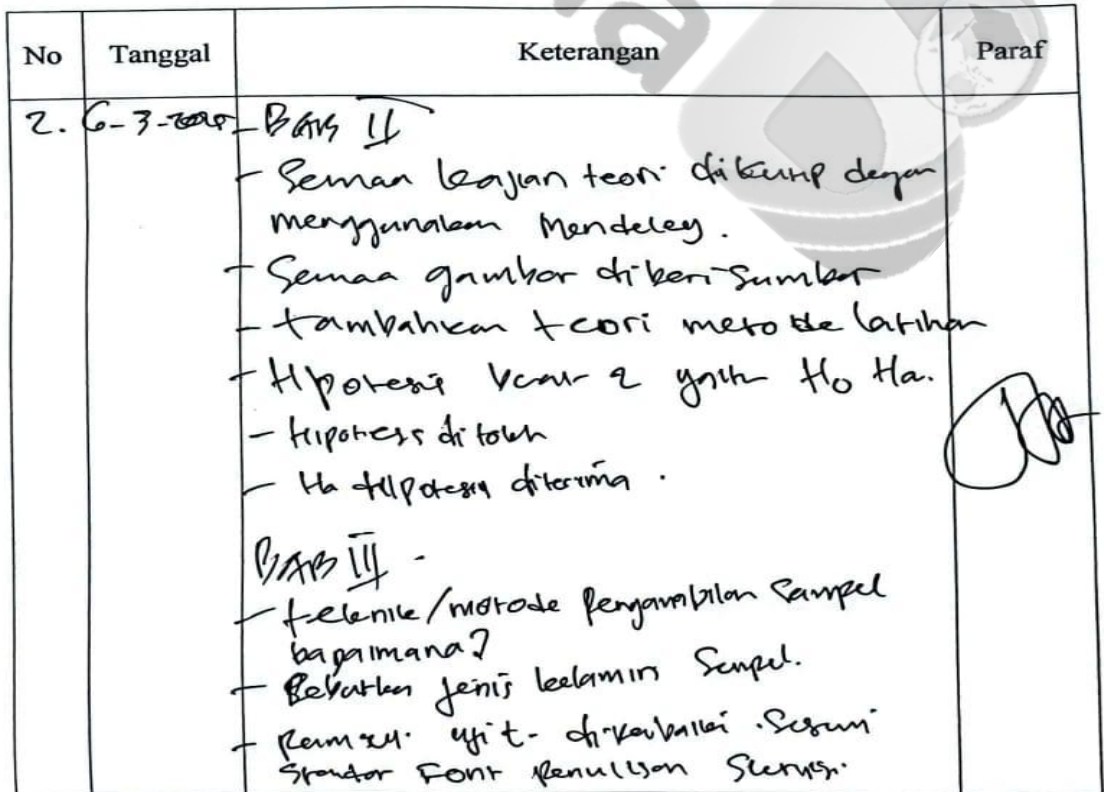 No Tanggal Keterangan Paraf
2. 6-3- - BAB II
- Semua kajian teori dikutip dengan
menggunakan Mendeley.
- Semua gambar diberi sumber
- tambahkan teori metode latihan
- Hipotesis 2 yaitu Ho Ha.
- Hipotesis ditolak
- Ha Hipotesis diterima.
BAB III -
- teknik/metode Pengambilan Sampel
bagaimana?
- Sebutkan Jenis kelamin Sampel.
- uji t - Sesuai
Standar Font Penulisan